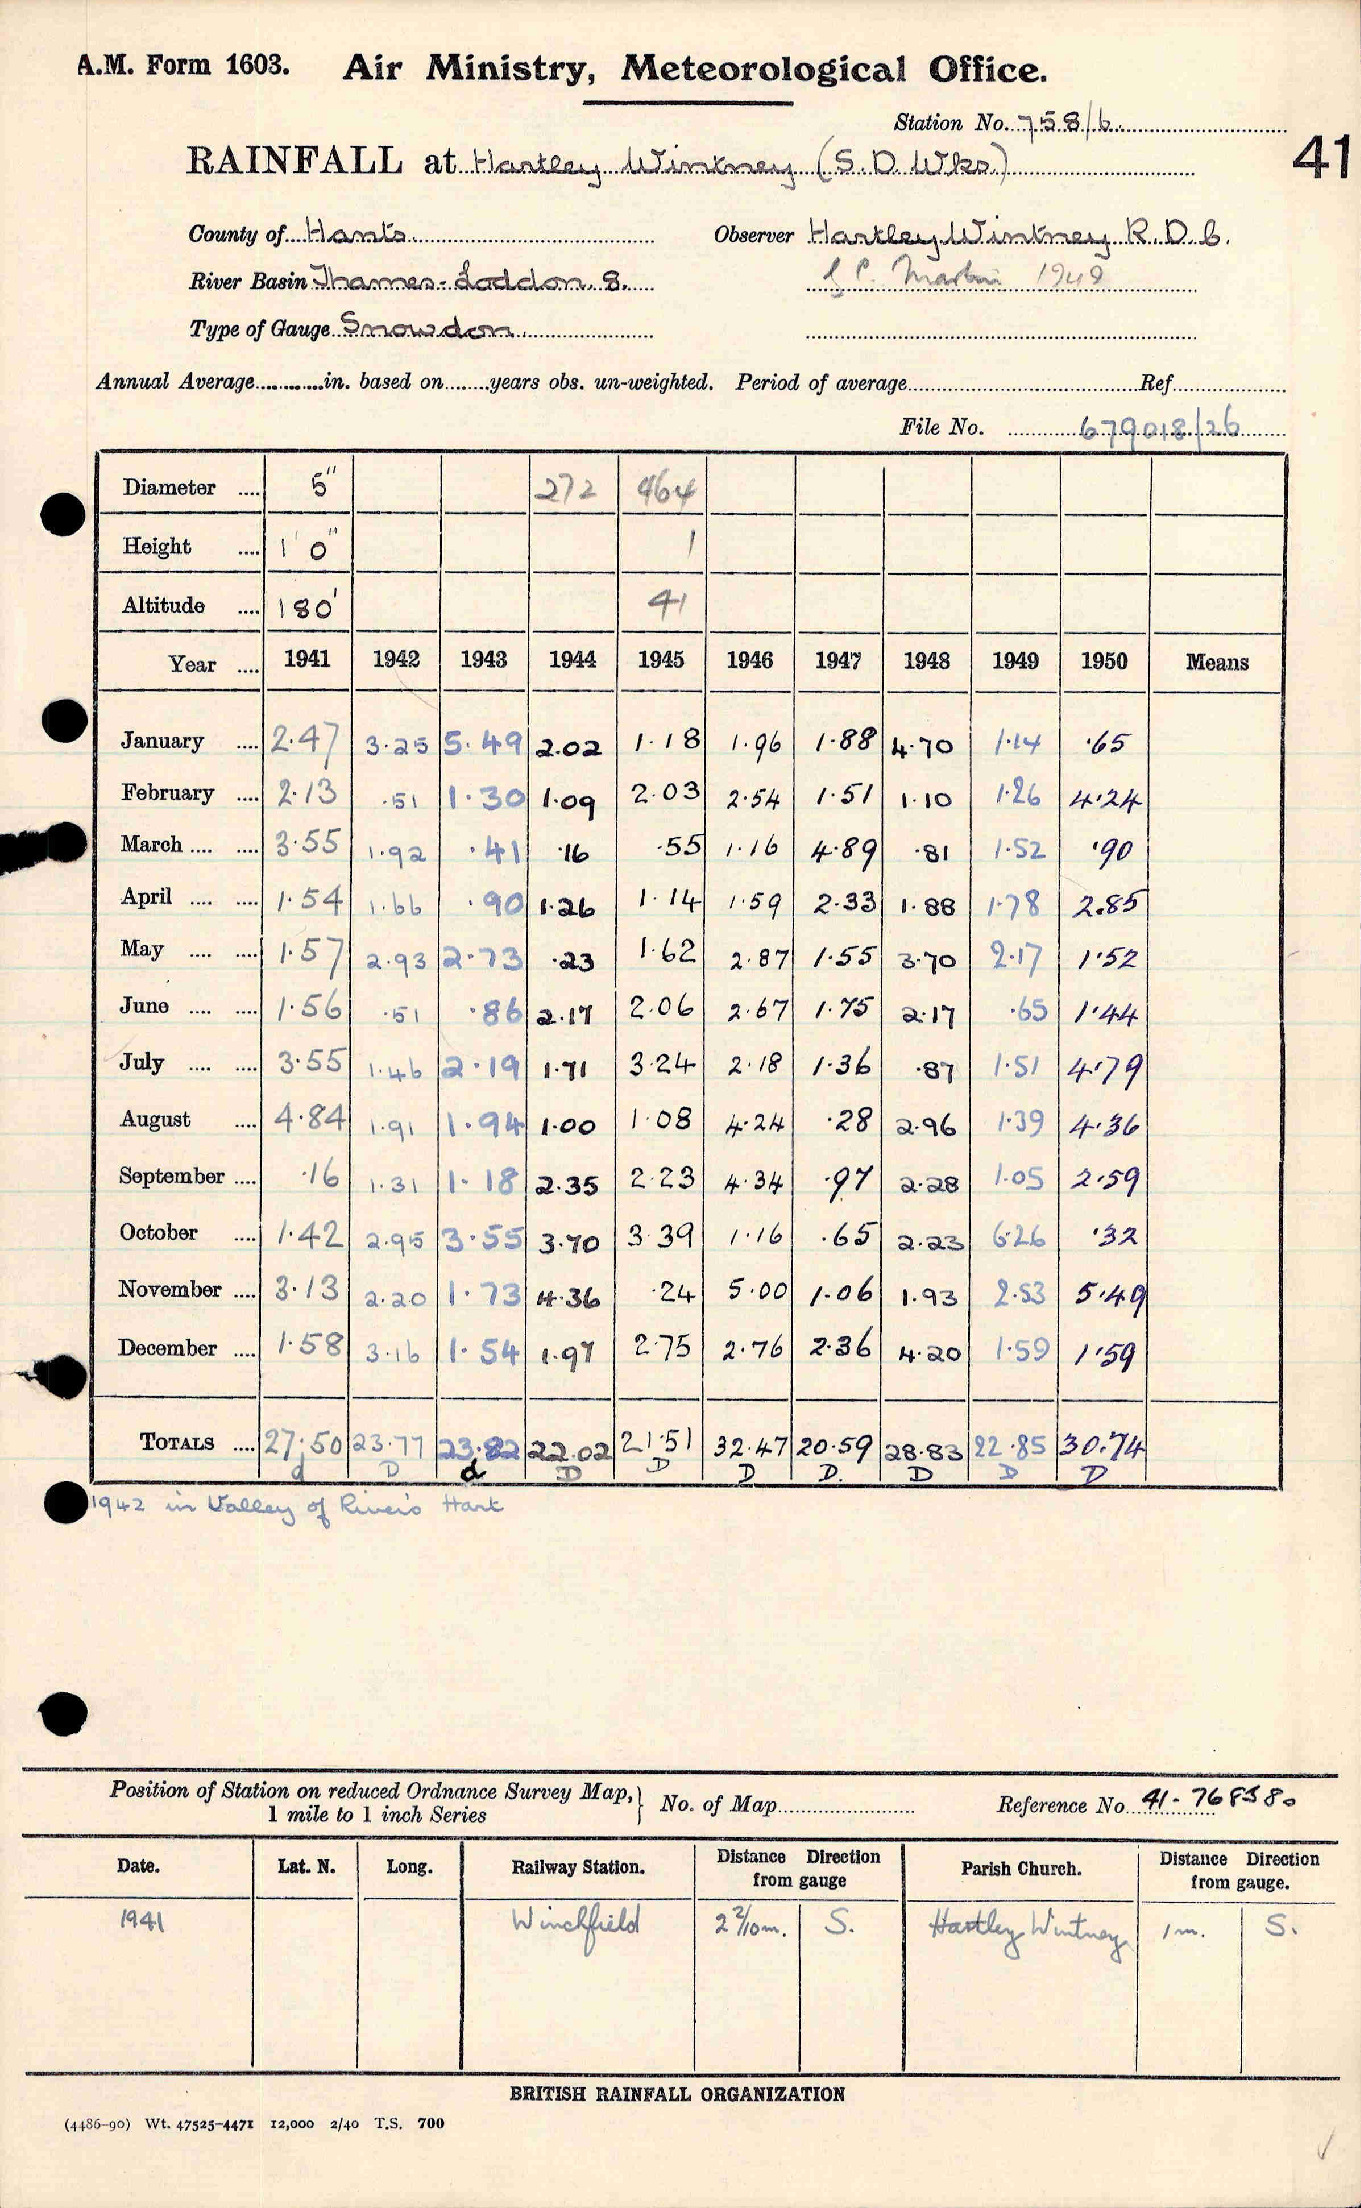 A.M. Form 1603. Air Ministry, Meteorological Office.
Station No. 758/6.
41
RAINFALL at Hartley Wintney (S.D. Wks.)
County of Hants. Observer Hartley Wintney R.D.C.
River Basin Thames-Loddon. 8. Martin 1949
Type of Gauge Snowdon.
Annual Average............in. based on........years obs. un-weighted. Period of average Ref
File No. 679018/26
Diameter .... 5" 272 464
Height .... 1' 0" 1
Altitude .... 180' 41
Year .... 1941 1942 1943 1944 1945 1946 1947 1948 1949 1950 Means
January .... 2.47 3.25 5.49 2.02 1.18 1.96 1.88 4.70 1.14 .65
February .... 2.13 .51 1.30 1.09 2.03 2.54 1.51 1.10 1.26 4.24
March .... .... 3.55 1.92 .41 .16 .55 1.16 4.89 .81 1.52 .90
April .... .... 1.54 1.66 .90 1.26 1.14 1.59 2.33 1.88 1.78 2.85
May .... .... 1.57 2.93 2.73 .23 1.62 2.87 1.55 3.70 2.17 1.52
June .... .... 1.56 .51 .86 2.17 2.06 2.67 1.75 2.17 .65 1.44
July .... .... 3.55 1.46 2.19 1.71 3.24 2.18 1.36 .87 1.51 4.79
August .... 4.84 1.91 1.94 1.00 1.08 4.24 .28 2.96 1.39 4.36
September .... .16 1.31 1.18 2.35 2.23 4.34 .97 2.28 1.05 2.59
October .... 1.42 2.95 3.55 3.70 3.39 1.16 .65 2.23 6.26 .32
November .... 3.13 2.20 1.73 4.36 .24 5.00 1.06 1.93 2.53 5.49
December .... 1.58 3.16 1.54 1.97 2.75 2.76 2.36 4.20 1.59 1.59
TOTALS .... 27.50 23.77 23.82 22.02 21.51 32.47 20.59 28.83 22.85 30.74
d D d D D D D. D D D
1942 in Valley of River's Hart
Position of Station on reduced Ordnance Survey Map, } No. of Map Reference No. 41-768580
1 mile to 1 inch Series
Date. Lat. N. Long. Railway Station. Distance from gauge Direction Parish Church. Distance from gauge. Direction
1941 Winchfield 2 2/10 m. S. Hartley Wintney 1 m. S.
BRITISH RAINFALL ORGANIZATION
(4486-90) Wt. 47525-4471 12,000 2/40 T.S. 700